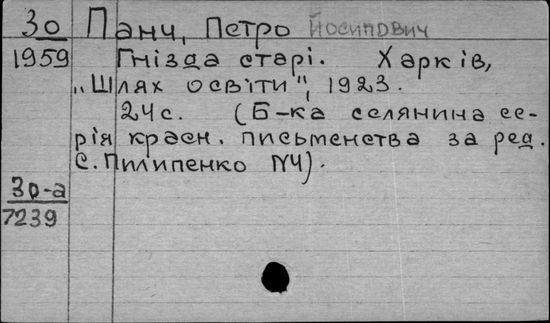 Зо Панч, Петро Йосипович
1959 Гнізда старі. Харків,
„Шлях освіти", 1923.
24с. (Б-ка селянина се-
рія красн. письменства за ред.
С. Пилипенко №4).
Зо-а
7239